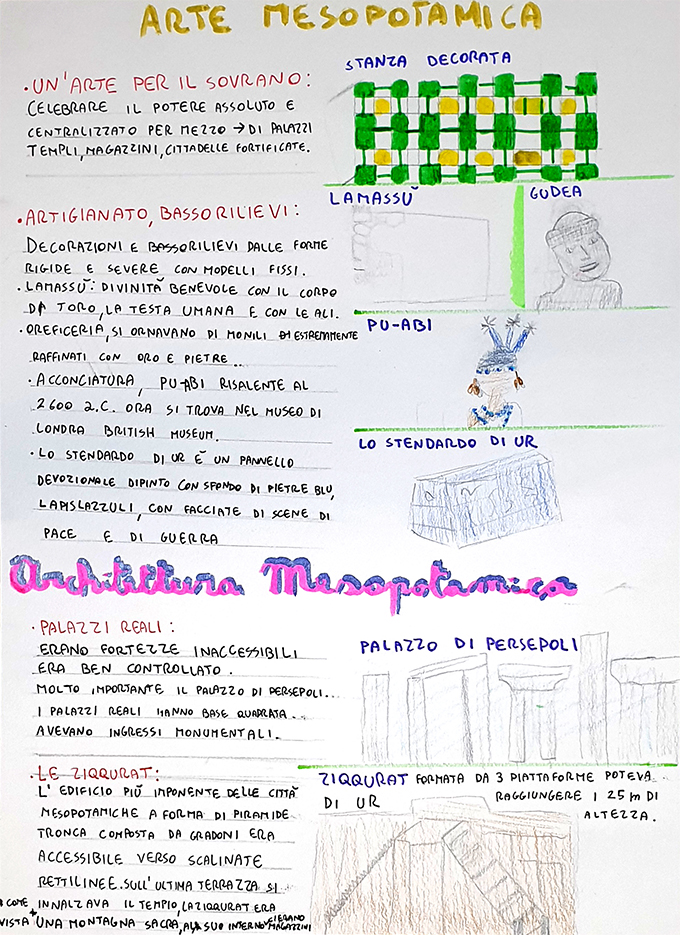 ARTE MESOPOTAMICA
STANZA DECORATA
• UN'ARTE PER IL SOVRANO:
CELEBRARE IL POTERE ASSOLUTO E
CENTRALIZZATO PER MEZZO → DI PALAZZI
TEMPLI, MAGAZZINI, CITTADELLE FORTIFICATE.
LAMASSŬ
GUDEA
• ARTIGIANATO, BASSORILIEVI:
DECORAZIONI E BASSORILIEVI DALLE FORME
RIGIDE E SEVERE CON MODELLI FISSI.
• LAMASSŬ: DIVINITÀ BENEVOLE CON IL CORPO
DA TORO, LA TESTA UMANA E CON LE ALI.
• OREFICERIA, SI ORNAVANO DI MONILI ESTREMAMENTE
RAFFINATI CON ORO E PIETRE...
PU-ABI
• ACCONCIATURA, PU-ABI RISALENTE AL
2600 a.C. ORA SI TROVA NEL MUSEO DI
LONDRA BRITISH MUSEUM.
LO STENDARDO DI UR
• LO STENDARDO DI UR È UN PANNELLO
DEVOZIONALE DIPINTO CON SFONDO DI PIETRE BLU,
LAPISLAZZULI, CON FACCIATE DI SCENE DI
PACE E DI GUERRA
Architettura Mesopotamica
• PALAZZI REALI:
ERANO FORTEZZE INACCESSIBILI
ERA BEN CONTROLLATO.
MOLTO IMPORTANTE IL PALAZZO DI PERSEPOLI...
I PALAZZI REALI HANNO BASE QUADRATA...
AVEVANO INGRESSI MONUMENTALI.
PALAZZO DI PERSEPOLI
• LE ZIQQURAT:
L'EDIFICIO PIÚ IMPONENTE DELLE CITTÀ
MESOPOTAMICHE A FORMA DI PIRAMIDE
TRONCA COMPOSTA DA GRADONI ERA
ACCESSIBILE VERSO SCALINATE
RETTILINEE. SULL'ULTIMA TERRAZZA SI
INNALZAVA IL TEMPIO, LA ZIQQURAT ERA
COME
VISTA + UNA MONTAGNA SACRA, AL SUO INTERNO VI ERANO MAGAZZINI
ZIQQURAT FORMATA DA 3 PIATTAFORME POTEVA
DI UR RAGGIUNGERE I 25 m DI
ALTEZZA.